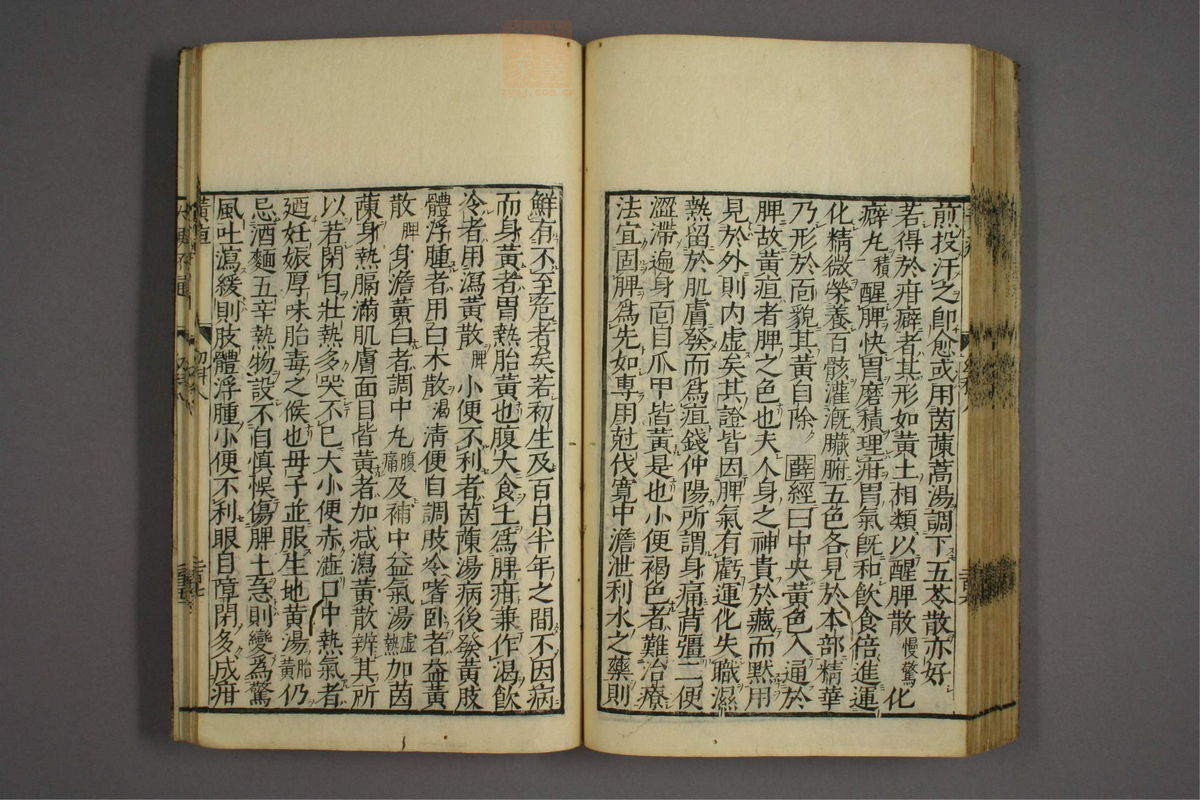 前投汗之即愈或用茵蔯蒿湯調下五苓散亦好
若得於疳癖者其形如黃土相類以醒脾散慢驚化
癖丸積醒脾快胃磨積理疳胃氣旣和飮食倍進運
化精微榮養百骸灌漑臟腑五色各見於本部精華
乃形於面貌其黃自除薛經曰中央黃色入通於
脾故黃疸者脾之色也夫人身之神貴於藏而黙用
見於外則内虛矣其證皆因脾氣有虧運化失職濕
熱留於肌膚發而爲疸錢仲陽所謂身痛背彊二便
澀滯遍身面目爪甲皆黃是也小便褐色者難治療
法宜固脾爲先如專用尅伐寬中澹泄利水之藥則
鮮有不至危者矣若初生及百日半年之間不因病
而身黃者胃熱胎黃也腹大食土爲脾疳兼作渴飮
冷者用瀉黃散脾小便不利者茵蔯湯病後發黃肢
體浮腫者用白木散渴淸便自調肢冷嗜卧者益黃
散脾身澹黃白者調中丸腹痛及補中益氣湯虛熱加茵
蔯身熱膈滿肌膚面目皆黃者加减瀉黃散辨其所
以若閉目壯熱多哭不已大小便赤澁口中熱氣者
廼妊娠厚味胎毒之候也毋子並服生地黃湯胎黃仍
忌酒麵五辛熱物設不自慎悞傷脾土急則變爲驚
風吐瀉緩則肢體浮腫小便不利眼目障閉多成疳
黃疸